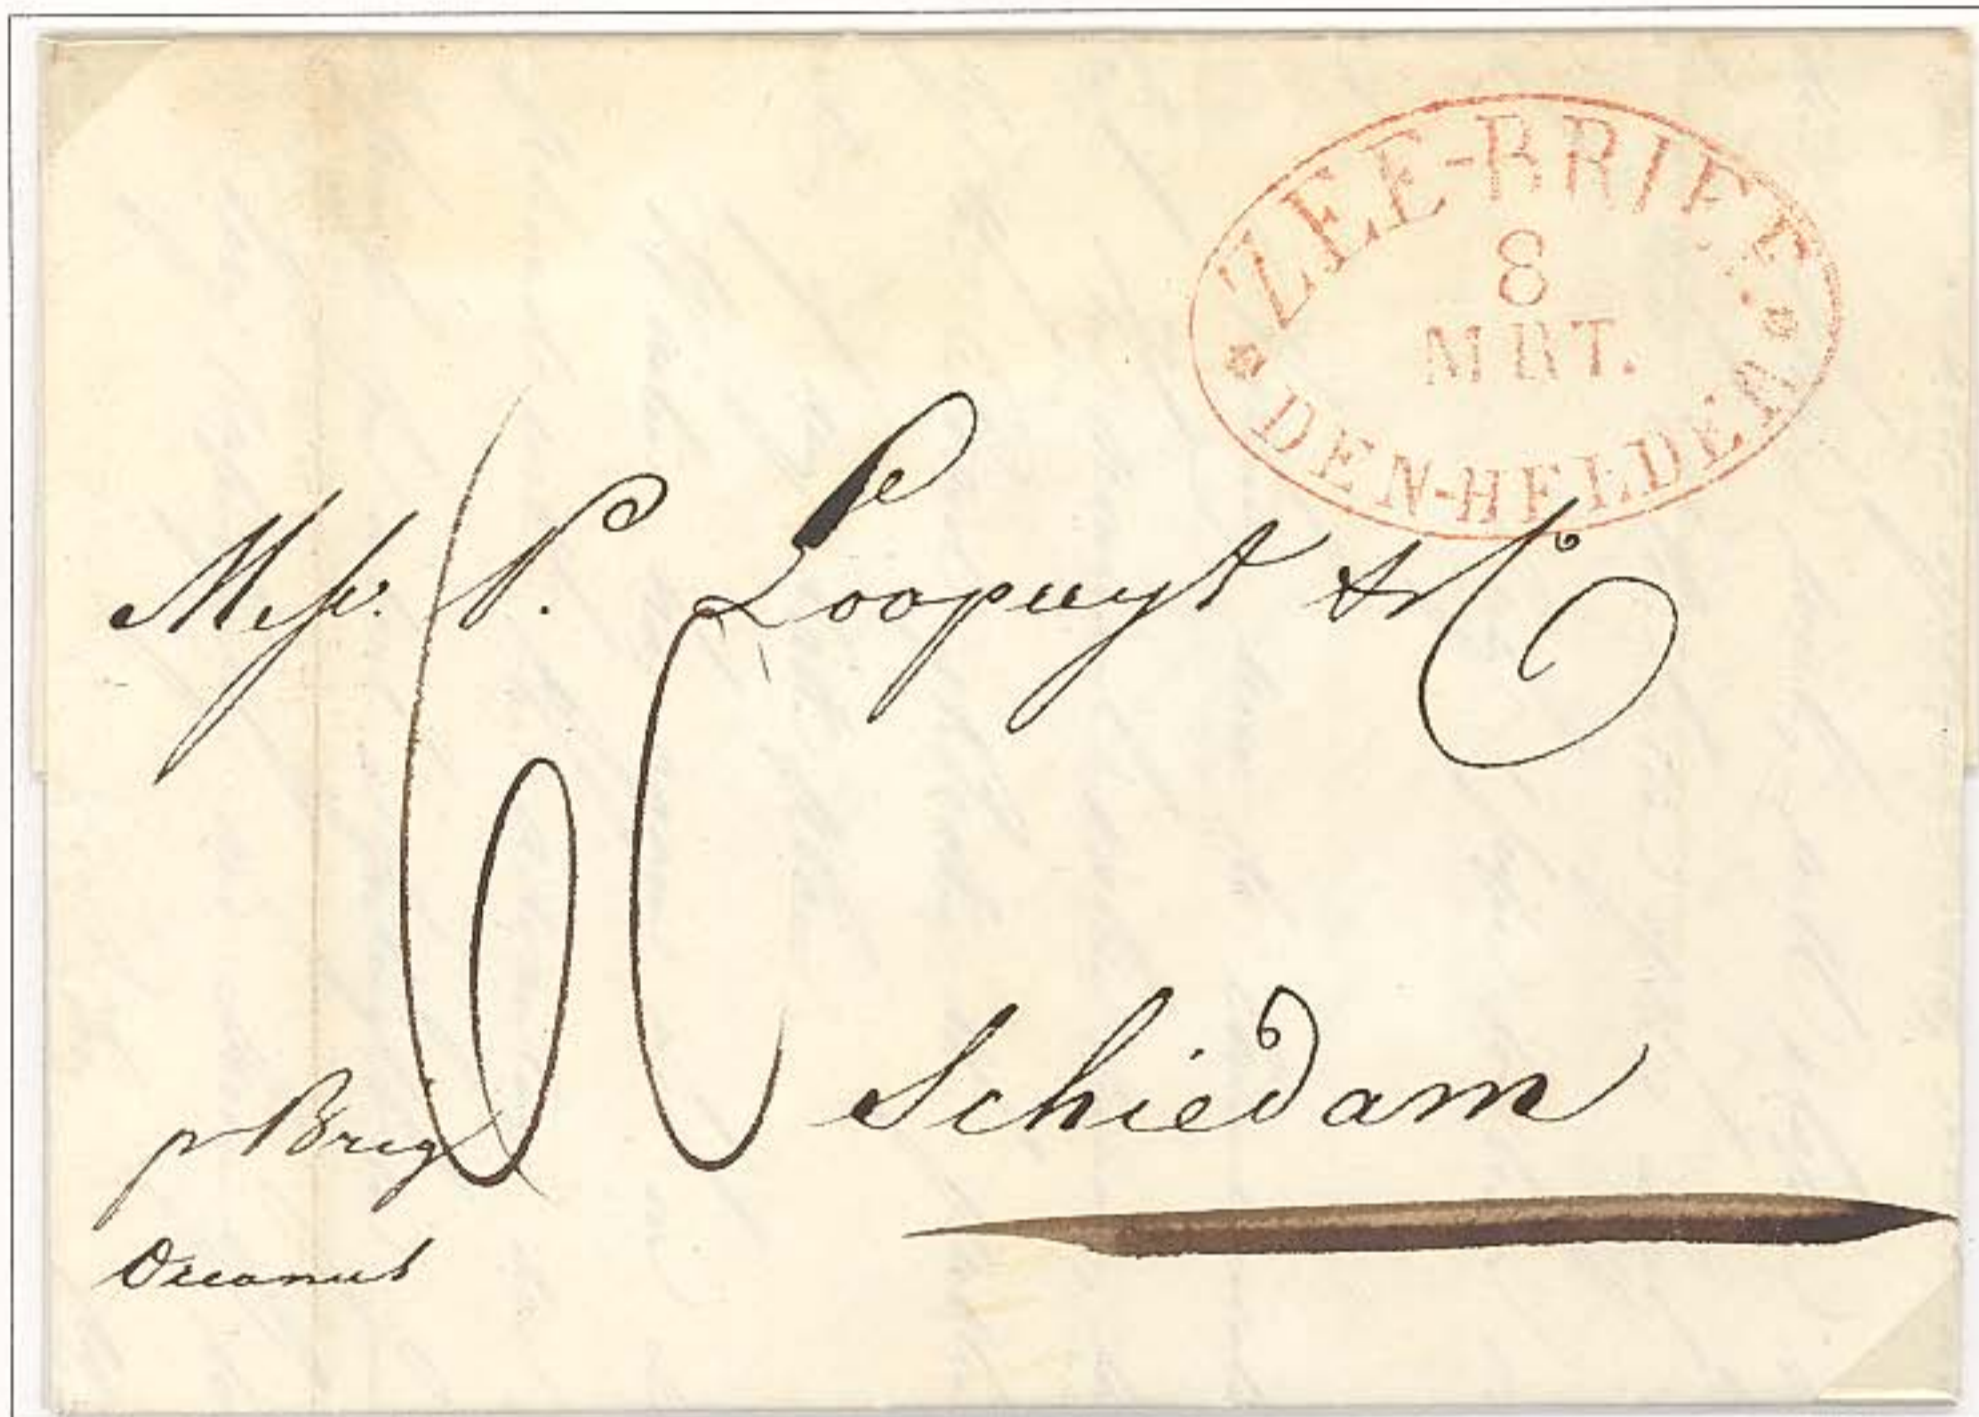 ZEE-BRIEF
8
MRT.
DEN-HELDER
Messr. P. Loopuyt & C
60
Schiedam
pr Brig
Occanus